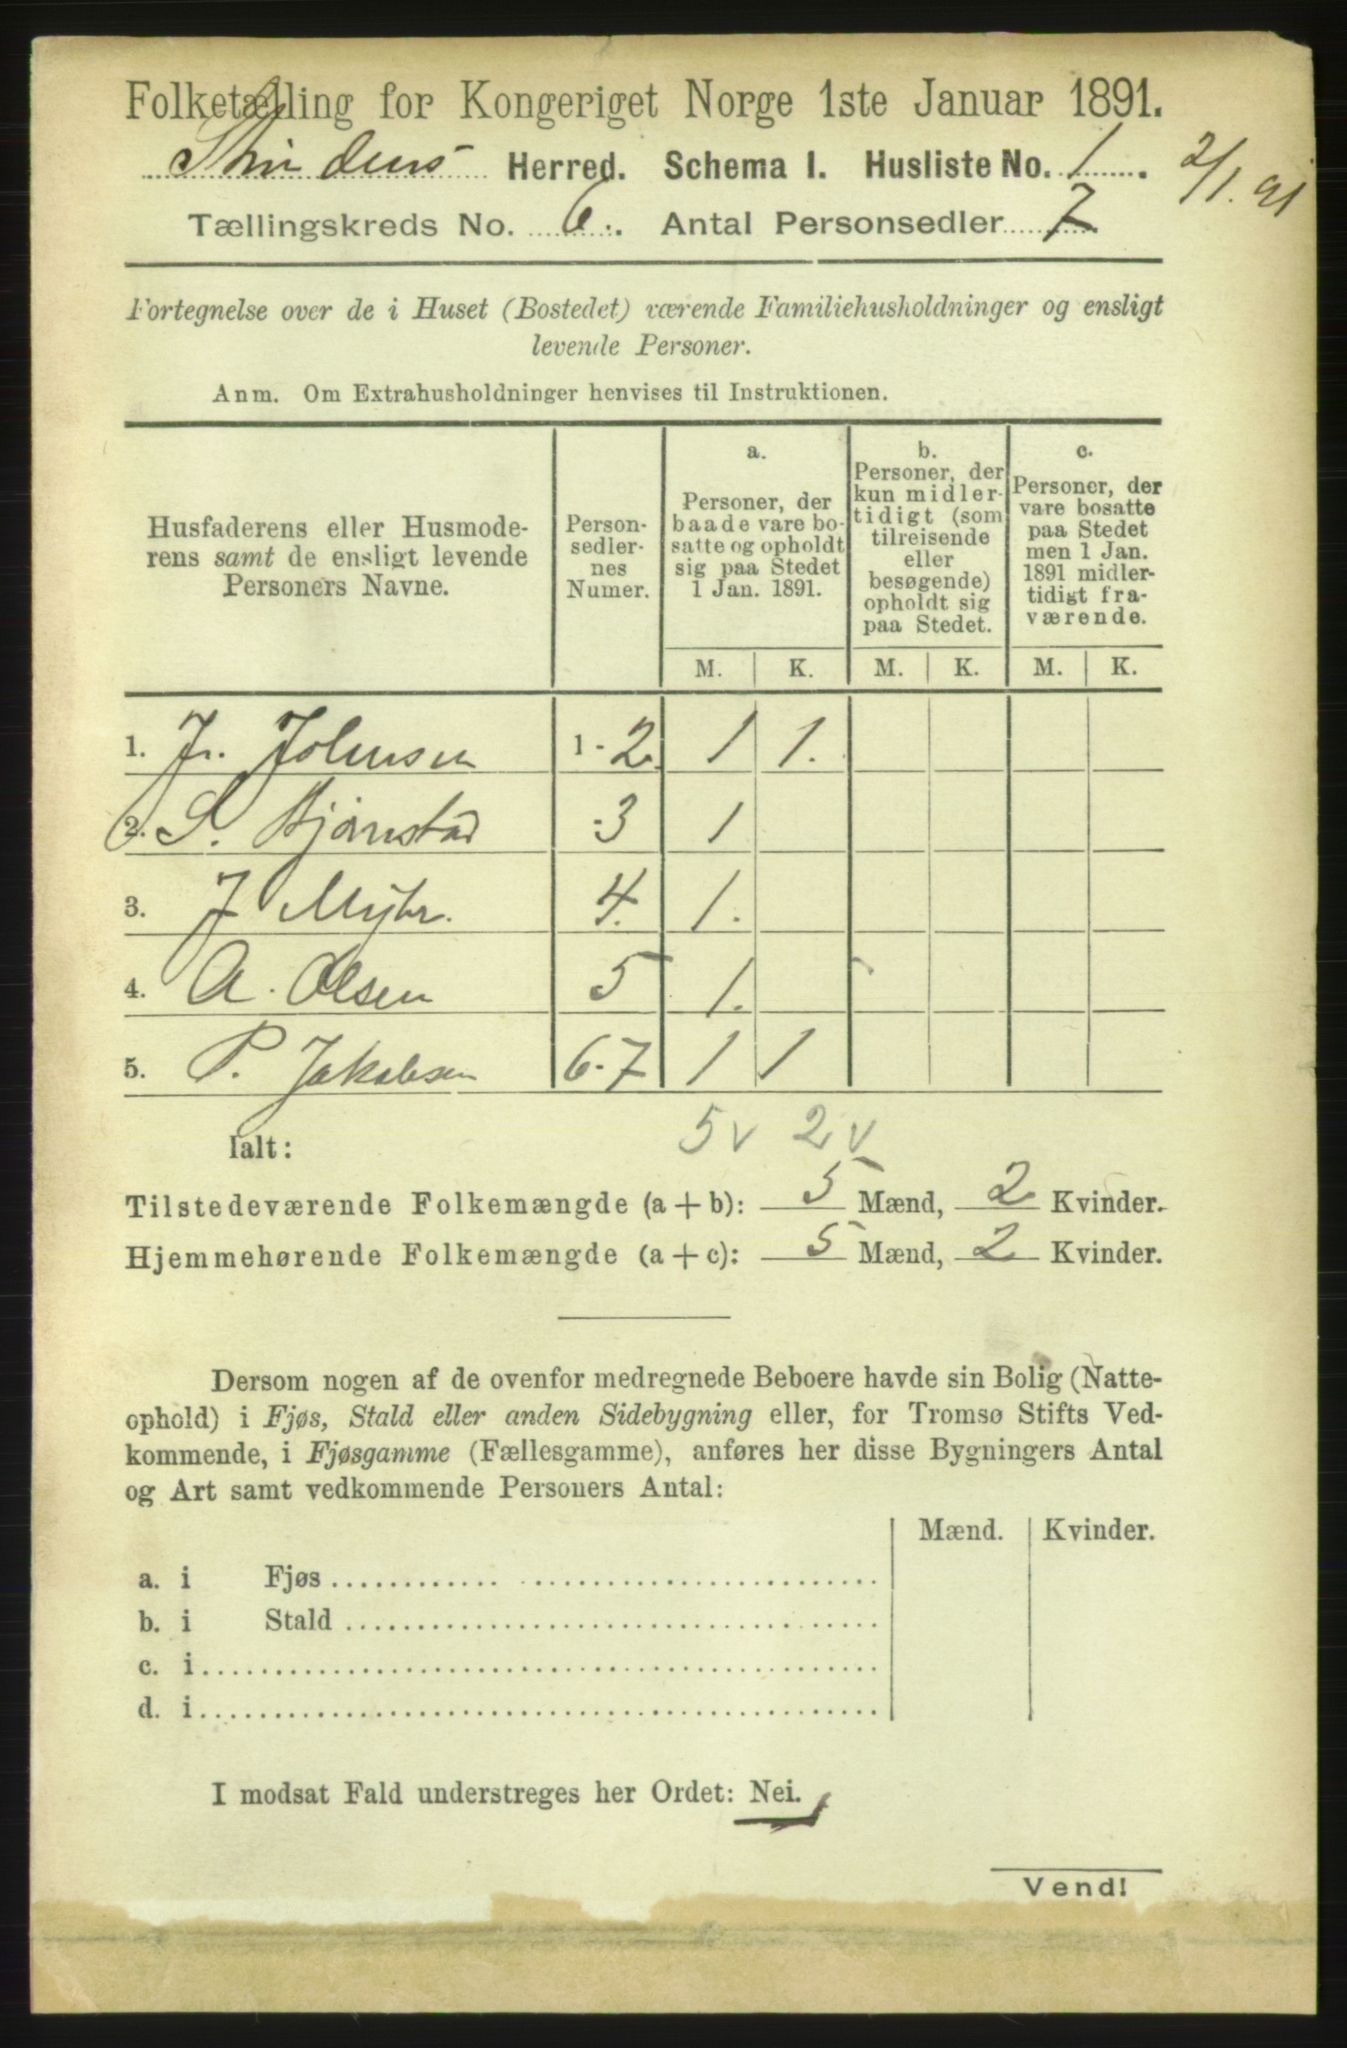 Folketælling for Kongeriget Norge 1ste Januar 1891.
Strindens Herred. Schema I. Husliste No. 1. 2/1. 91
Tællingskreds No. 6. Antal Personsedler 7
Fortegnelse over de i Huset (Bostedet) værende Familiehusholdninger og ensligt
levende Personer.
Anm. Om Extrahusholdninger henvises til Instruktionen.
Husfaderens eller Husmode-
rens samt de ensligt levende
Personers Navne.
Person-
sedler-
nes
Numer.
a.
Personer, der
baade vare bo-
satte og opholdt
sig paa Stedet
1 Jan. 1891.
b.
Personer, der
kun midler-
tidigt (som
tilreisende
eller
besøgende)
opholdt sig
paa Stedet.
c.
Personer, der
vare bosatte
paa Stedet
men 1 Jan.
1891 midler-
tidigt fra-
værende.
M. K. M. K. M. K.
1. Jr. Johnsen 1 - 2 1 1.
2. S. Bjørnstad - 3 1
3. J Myhr. 4. 1.
4. A. Olsen 5 1.
5. P. Jakobsen 6-7 1 1
Ialt: 5 v 2 v
Tilstedeværende Folkemængde (a + b): 5 Mænd, 2 Kvinder.
Hjemmehørende Folkemængde (a + c): 5 Mænd, 2 Kvinder.
Dersom nogen af de ovenfor medregnede Beboere havde sin Bolig (Natte-
ophold) i Fjøs, Stald eller anden Sidebygning eller, for Tromsø Stifts Ved-
kommende, i Fjøsgamme (Fællesgamme), anføres her disse Bygningers Antal
og Art samt vedkommende Personers Antal:
Mænd. Kvinder.
a. i Fjøs
b. i Stald
c. i
d. i
I modsat Fald understreges her Ordet: Nei.
Vend!